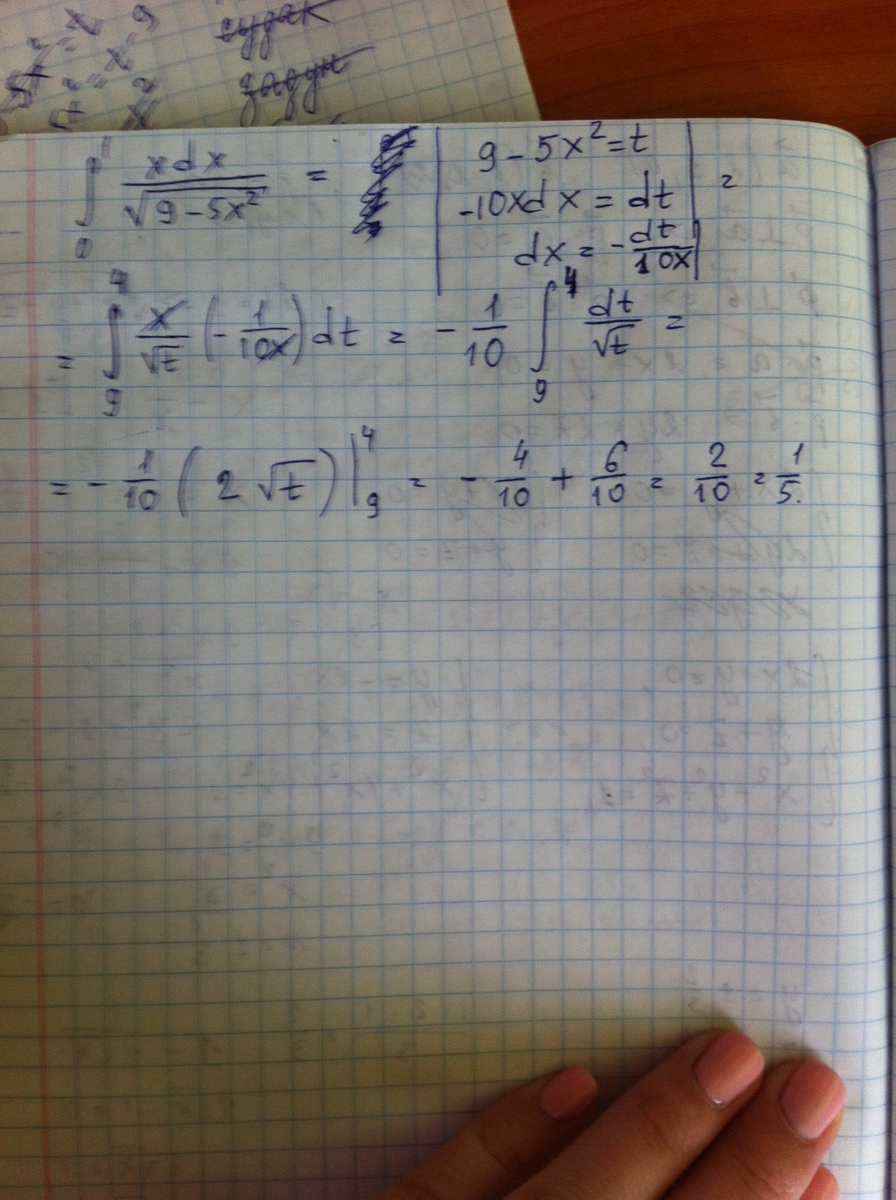 x 9
судак
x
задун
∫₀¹ xdx / √(9-5x²) = | 9-5x²=t
-10xdx = dt
dx = -dt/10x | =
= ∫₉⁴ x/√t (-1/10x) dt = -1/10 ∫₉⁴ dt/√t =
= -1/10 (2√t) |₉⁴ = -4/10 + 6/10 = 2/10 = 1/5.